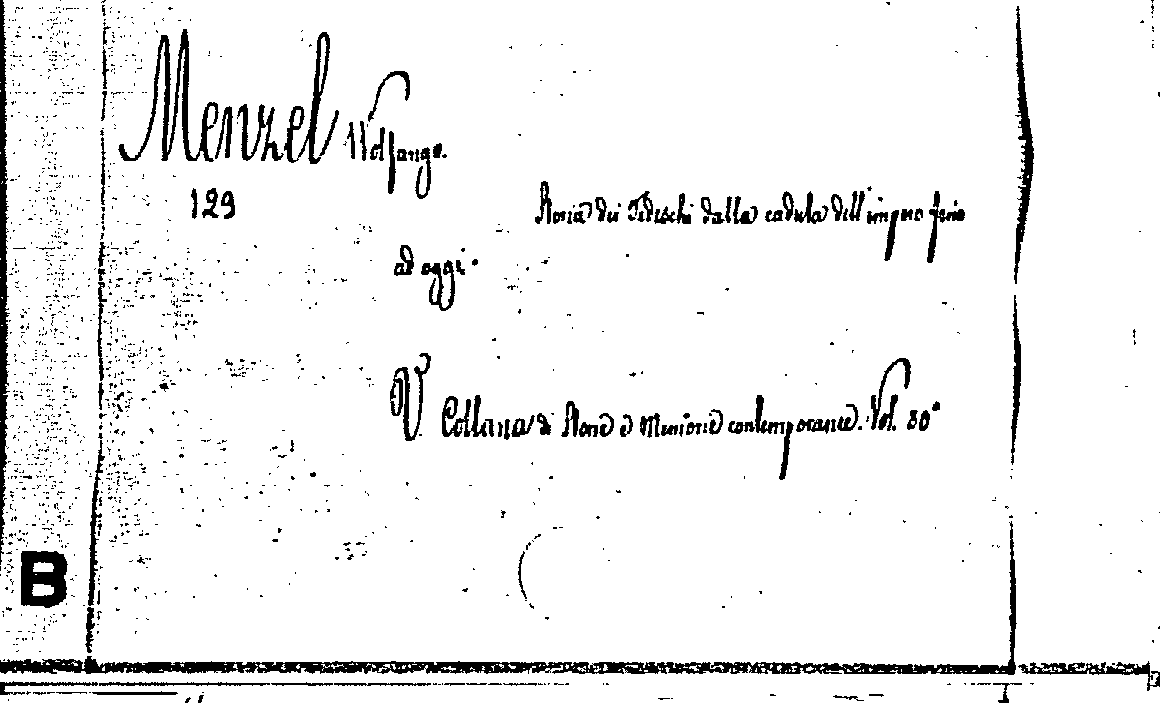 Menzel Wolfango.
129
Storia dei Tedeschi dalla caduta dell'impero fino
ad oggi.
V. Collana di Storie e Memorie contemporanee. Vol. 30°
B